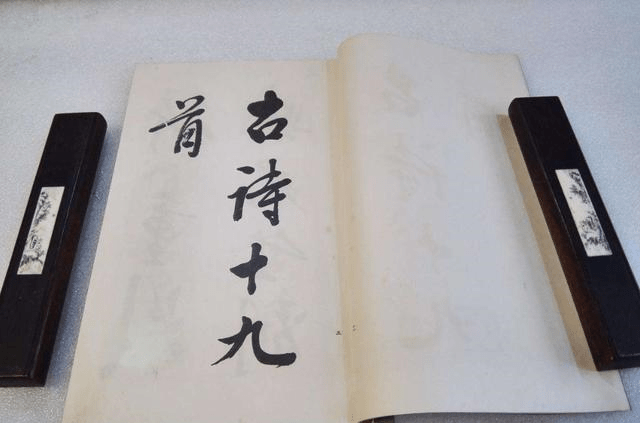 古诗十九
首